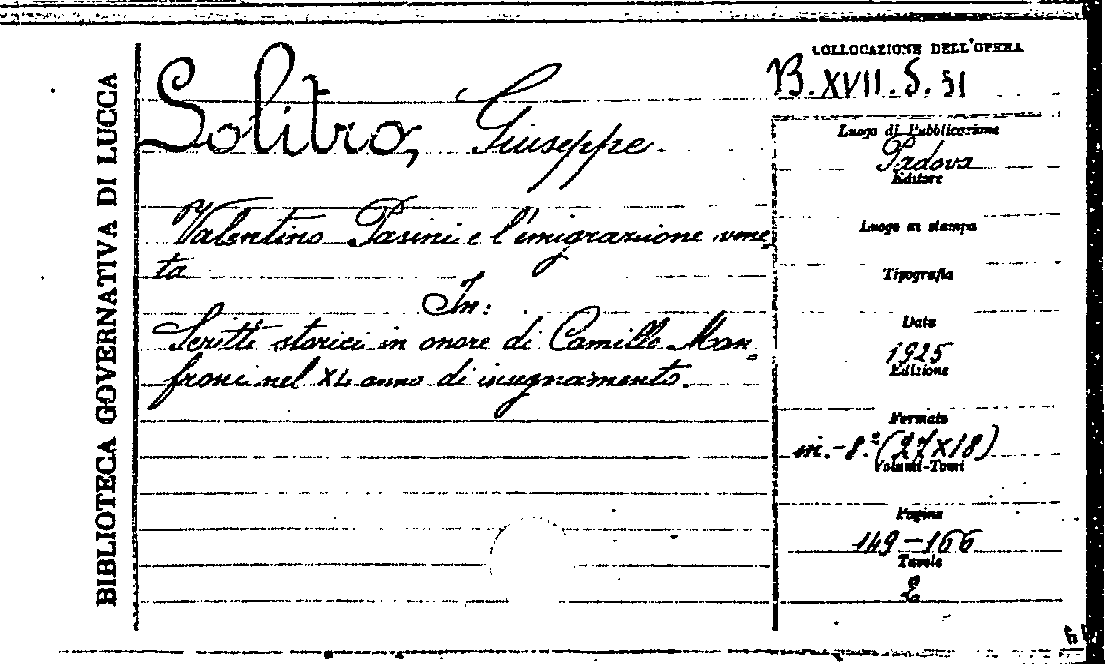 BIBLIOTECA GOVERNATIVA DI LUCCA
Solitro, Giuseppe.
Valentino Pasini e l'emigrazione vene-
ta
In:
Scritti storici in onore di Camillo Man-
froni nel XL anno di insegnamento.
COLLOCAZIONE DELL'OPERA
B. XVII. 5. 51
Luogo di Pubblicazione
Padova
Editore
Luogo di stampa
Tipografia
Data
1925
Edizione
Formato
in.-8.° (27x18)
Volumi-Tomi
Pagine
149-166
Tavole
2